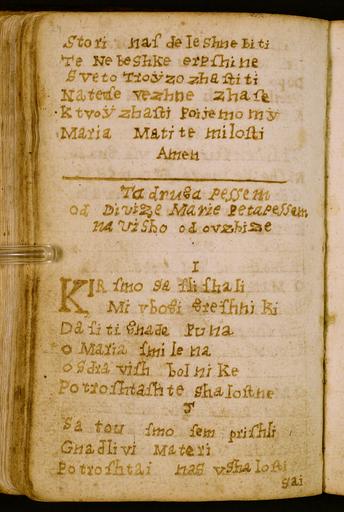 Stori nas deleshne biti
Te Nebeshke erpshine
Sveto troyzo zhastiti
Natese vezhne zhase
K tvoy zhasti poijemo my
Maria Mati te milosti
Amen
Ta druga Pessem
od Divize Marie petapessem
na visho od ovzhize
I
KIR smo sa slishali
Mi vbogi Greshniki
Da si ti gnade puna
o Maria smilena
o sdravish bolnike
Potroshtashte shalostne
Sa tou smo sem prishli
Gnadlivi Materi
Potroshtai nas vshalosti
gai